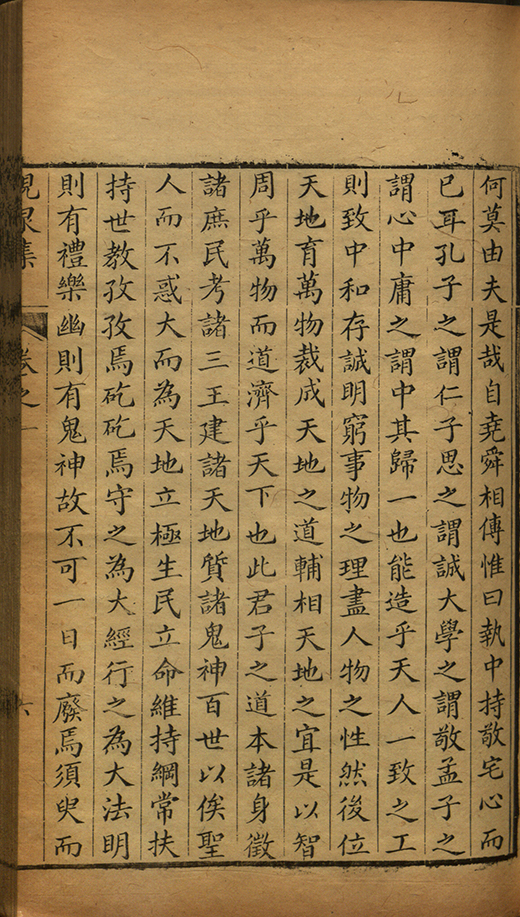 何莫由夫是哉自堯舜相傳惟曰執中持敬宅心而
已耳孔子之謂仁子思之謂誠大學之謂敬孟子之
謂心中庸之謂中其歸一也能造乎天人一致之工
則致中和存誠明窮事物之理盡人物之性然後位
天地育萬物裁成天地之道輔相天地之宜是以智
周乎萬物而道濟乎天下也此君子之道本諸身徵
諸庶民考諸三王建諸天地質諸鬼神百世以俟聖
人而不惑大而為天地立極生民立命維持綱常扶
持世教孜孜焉矻矻焉守之為大經行之為大法明
則有禮樂幽則有鬼神故不可一日而廢焉須臾而
集 卷之一 六